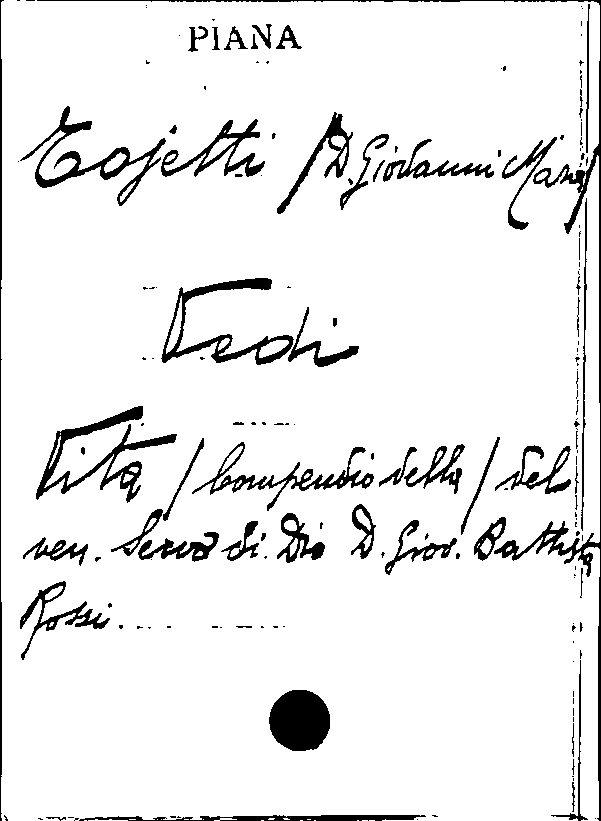 PIANA
Tojetti /D. Giovanni Maria/
Vedi
Vita /Compendio della/ del
ven. Servo di Dio D. Giov. Battista
Rossi.